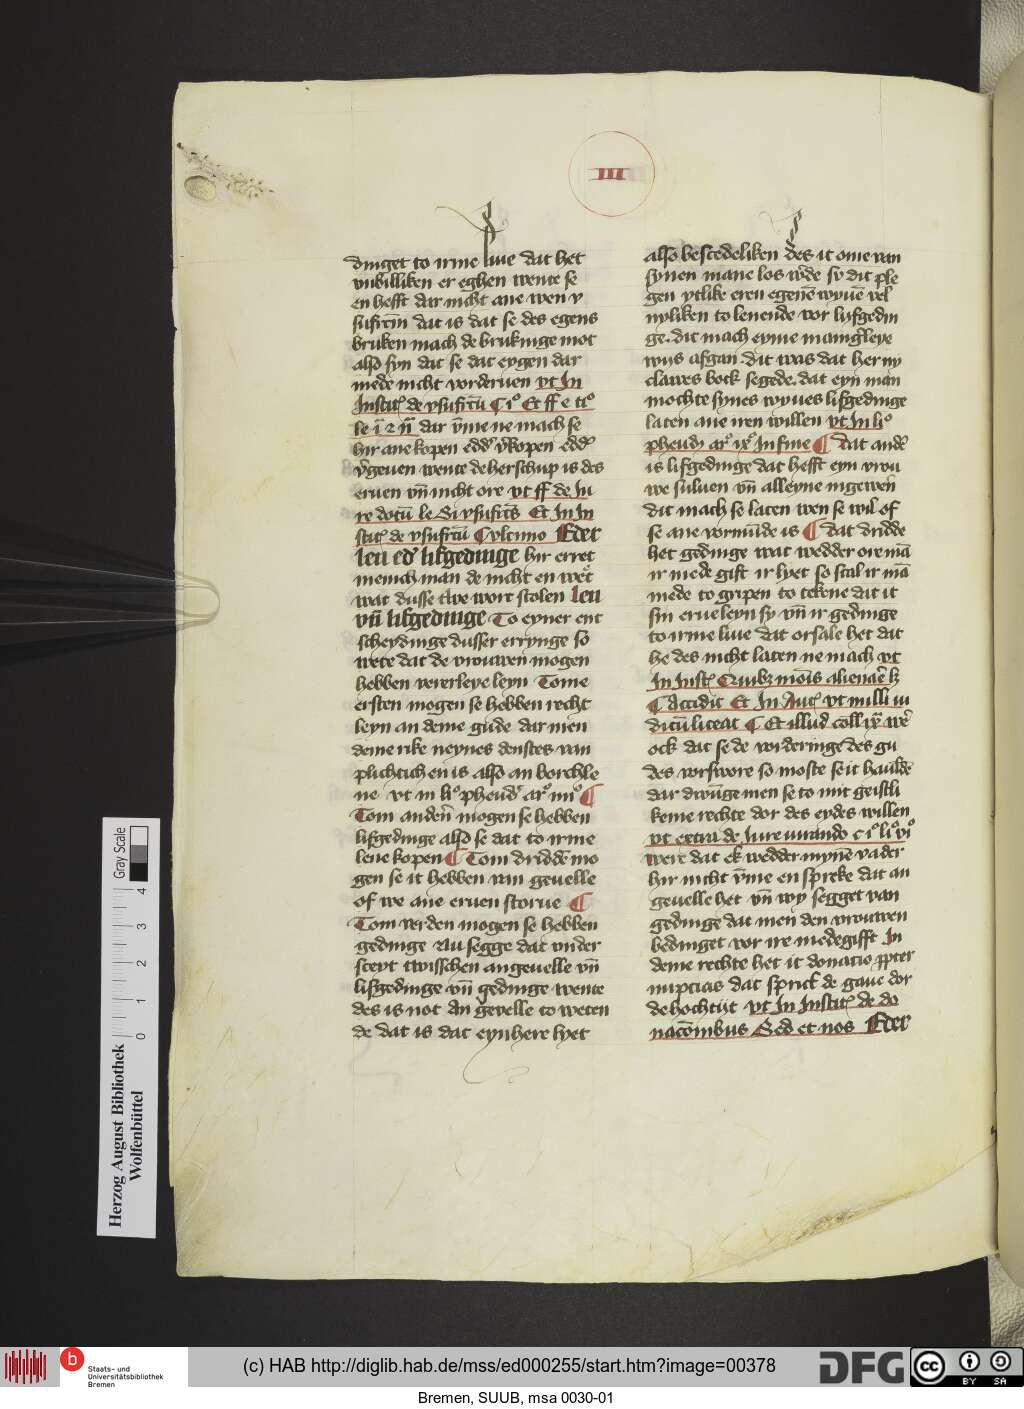 III
dinget to irme liue dat het
vnbilliken er eghen wente se
en hefft dar nicht ane wen v
sufrctm̄ dat is dat se des egens
bruken mach de brukinge mot
also syn dat se dat eygen dar
mede nicht vorderuen vt In
Instit᷒ de vsufrctū C i° Et ff e tio
le i 2 ii dar vme ne mach se
hir ane kopen edd' v'kopen edd'
v'geuen wente de herschup is des
eruen vn̄ nicht ore vt ff de Iu
re dotū le Si vsufrcts Et In In
stit᷒ de vsufrctū C vltimo Eder
len ed' lifgedinge hir erret
mennich man de nicht en wet
wat dusse twe wort stolen len
vn̄ lifgedinge To eyner ent
scheydinge dusser errynge so
wete dat de vrouwen mogen
hebben vererleye leyn Tome
ersten mogen se hebben recht
leyn an deme gude dar men
deme rike neynes denstes van
plichtich en is also an borchle
ne vt in li° pheud' ar° iiii° ¶
Tom ander̄ mogen se hebben
lifgedinge also se dat to irme
leue kopen ¶ Tom driddē mo
gen se it hebben van geuelle
of we ane eruen storue ¶
Tom verden mogen se hebben
gedinge Nu segge dat vnder
sceyt twisschen angeuelle vn̄
lifgedinge vn̄ gedinge wente
des is not An gevelle to weten
de dat is dat eyn here lyet
also bescedeliken des it ome van
synen mane los w'de sy dit ple
gen ytlike eren egenē wyuē vel
nyliken to lenende vor lyfgedin
ge. dit mach eynne mannig'leye
wiis afgan dit was dat her ny
clawes bock segede. dat eyn man
mochte synes wyues lifgedinge
laten ane iren willen vt In li°
pheudi ar° ix° In fine ¶ dat ander
is lifgedinge dat hefft eyn vrou
we suluen vn̄ alleyne ingewer̄
dit mach se laten wen se wil of
se ane vormūde is ¶ dat dridde
het gedinge wat wedder ore mā
ir mede gift ir lyet so scal ir mā
mede to gripen to tekene dat it
sin erue leyn sy vn̄ ir gedinge
to irme liue dat orsale het dat
he des nicht laten ne mach vt
In Inst᷒ Quib3 mois alienare l3
C accidit Et In Auct᷒ vt nulli iu
dicū liceat C Et illud coll ix wer
ock dat se de vorderinge des gu
des vorswore so moste se it haulde
dar dwūge men se to mit geistli
keme rechte dor des eydes willen
vt extra de Iure iurando c i° li° vi°
were dat ek wedder mynē vader
hir nicht v'me en spreke dat an
geuelle het vn̄ wy segget van
gedinge dat men den vrouwen
bedinget vor ire medegifft In
deme rechte het it donacio ꝓpter
nupcias dat sprict de gaue dor
de hochtijt vt In Instit᷒ de do
nacōnibus Sed et nos Eder
Gray Scale
4
3
2
1
0
Herzog August Bibliothek
Wolfenbüttel
b
Staats- und
Universitätsbibliothek
Bremen
(c) HAB http://diglib.hab.de/mss/ed000255/start.htm?image=00378
DFG
cc
BY SA
Bremen, SUUB, msa 0030-01